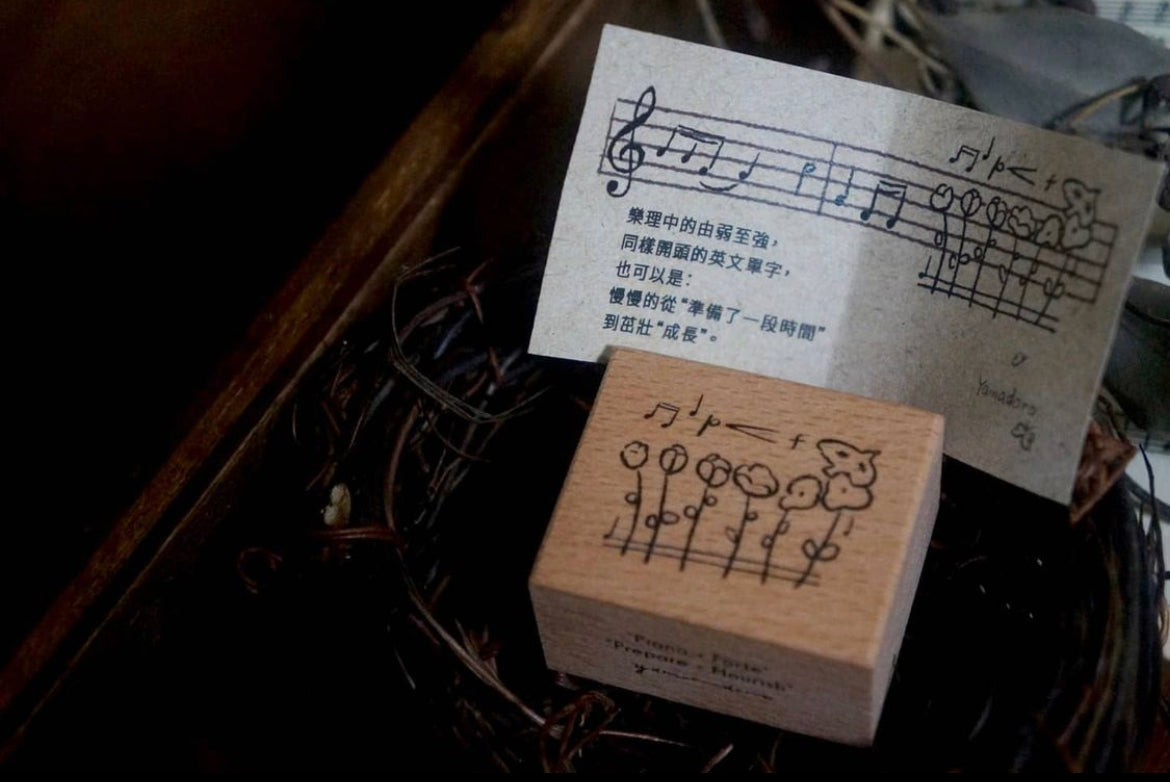 p < f
樂理中的由弱至強，
同樣開頭的英文單字，
也可以是：
慢慢的從“準備了一段時間”
到茁壯“成長”。
Yamadoro
p < f
"Piano · Forte"
"Prepare · Flourish"